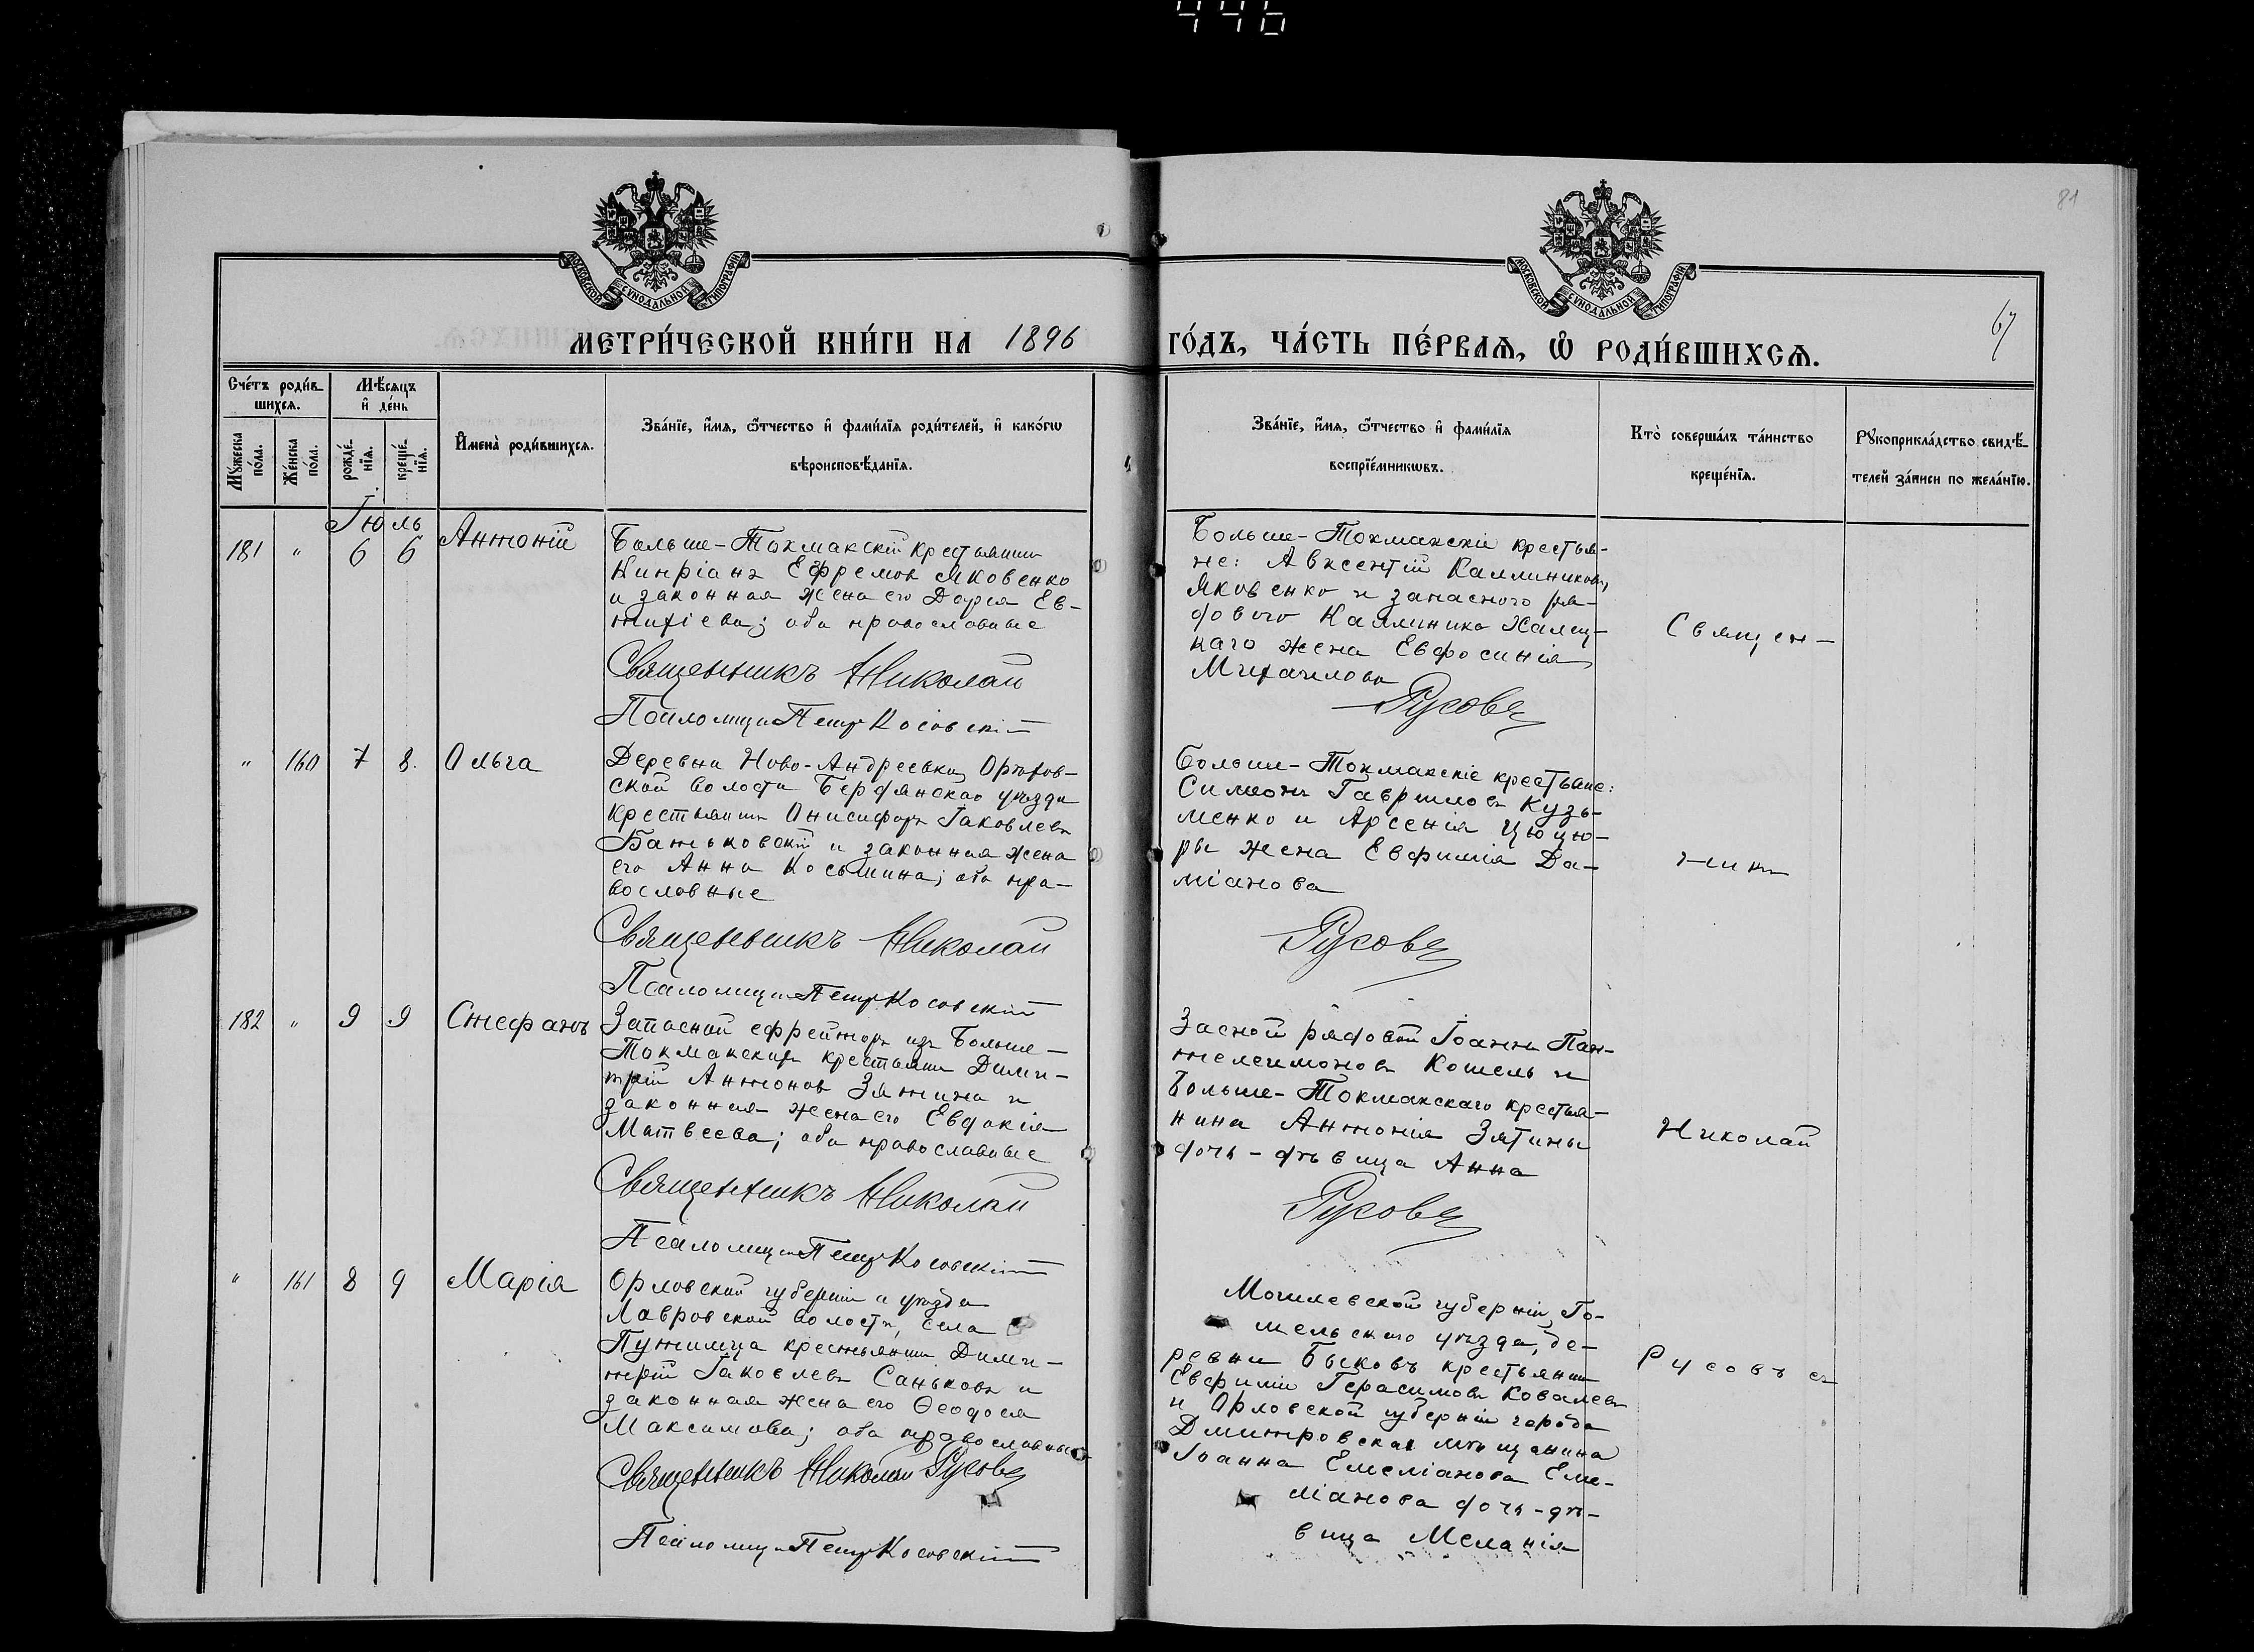 446
81
67
МОСКОВСКОЙ СѴНОДАЛЬНОЙ ТИПОГРАФІИ
МОСКОВСКОЙ СѴНОДАЛЬНОЙ ТИПОГРАФІИ
МЕТРИ́ЧЕСКОЙ КНИ́ГИ НА 1896 ГО́ДЪ, ЧА́СТЬ ПЕ́РВАѦ, Ѽ РОДИ́ВШИХСѦ.
Сче́тъ роди́в-
шихсѧ.
Мꙋ́жеска по́ла.
Же́нска по́ла.
Мѣ́сѧцъ и҆ де́нь
рожде́-
нїѧ.
креще́-
нїѧ.
И҆мена̀ роди́вшихсѧ.
Зва́нїе, и҆́мѧ, ѻ҆́тчество и҆ фами́лїѧ роди́телей, и҆ како́гѡ
вѣроисповѣ́данїѧ.
Зва́нїе, и҆́мѧ, ѻ҆́тчество и҆ фами́лїѧ
воспрїе́мникѡвъ.
Кто̀ соверша́лъ та́инство
креще́нїѧ.
Рꙋкоприкла́дство свидѣ́-
телей за́писи по жела́нїю.
Іюль
181 " 6 6 Антоній
Больше-Токмакскій крестьянинъ
Кипріанъ Ефремовъ Яковенко
и законная жена его Дарія Ев-
тихіева; оба православные
Священникъ Николай
Псаломщ. Петръ Косовскій
Больше-Токмакскіе крестья-
не: Авксентій Каллиниковъ
Яковенко и запаснаго ря-
дового Каллиника
каго жена Евфосинія
Михаилова
Русовъ
Священ-
" 160 7 8. Ольга
Деревни Ново-Андреевки,
ской волости Бердянскаго уѣзда
крестьянинъ Онисифоръ Іаковлевъ
Батьковскій и законная жена
его Анна Косьмина; оба пра-
вославные
Священникъ Николай
Псаломщ. Петръ Косовскій
Больше-Токмакскіе крестьяне:
Симеонъ Гавриловъ Кузь-
менко и Арсенія Цюцю-
ры жена Евфимія Да-
міанова
Русовъ
никъ
182 " 9 9 Стефанъ
Запасной ефрейторъ изъ Больше-
Токмакскихъ крестьянъ Дими-
трій Антоновъ Зятина и
законная жена его Евдокія
Матвеева; оба православные
Священникъ Николай
Псаломщ. Петръ Косовскій
Засной рядовой Іоаннъ Пан-
телеимоновъ Кошель и
Больше-Токмакскаго крестья-
нина Антонія Зятины
дочь-дѣвица Анна
Русовъ
Николай
" 161 8 9 Марія
Орловской губерніи и уѣзда
Лавровской волости, села
Путимца крестьянинъ Дими-
трій Іаковлевъ Саньковъ и
законная жена его Ѳеодосія
Максимова; оба православные
Священникъ Николай Русовъ
Псаломщ. Петръ Косовскій
Могилевской губерніи, Го-
мельскаго уѣзда, де-
ревни Быковъ крестьянинъ
Евфимій Герасимовъ Ковалевъ
и Орловской губерніи города
Дмитровска мѣщанина
Іоанна Емеліанова Еме-
ліанова дочь-дѣ-
вица Меланія
Русовъ съ